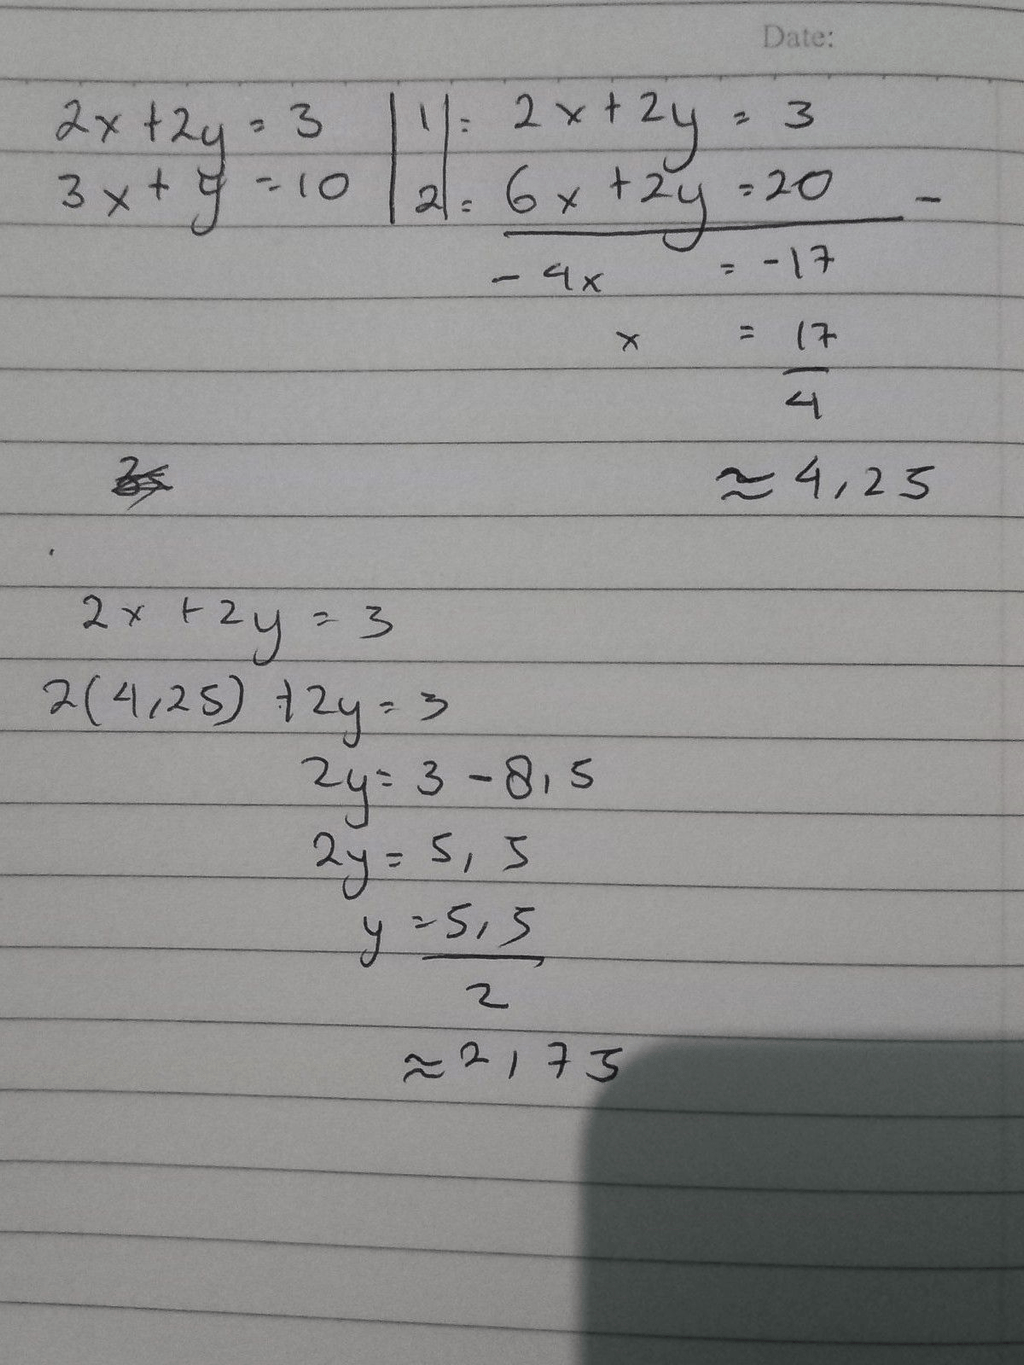 Date:
2x + 2y = 3 | 1 | = 2x + 2y = 3
3x + y = 10 | 2 | = 6x + 2y = 20 -
- 4x = -17
x = 17
4
≈ 4,25
2x + 2y = 3
2(4,25) + 2y = 3
2y = 3 - 8,5
2y = 5,5
y = 5,5
2
≈ 2,75